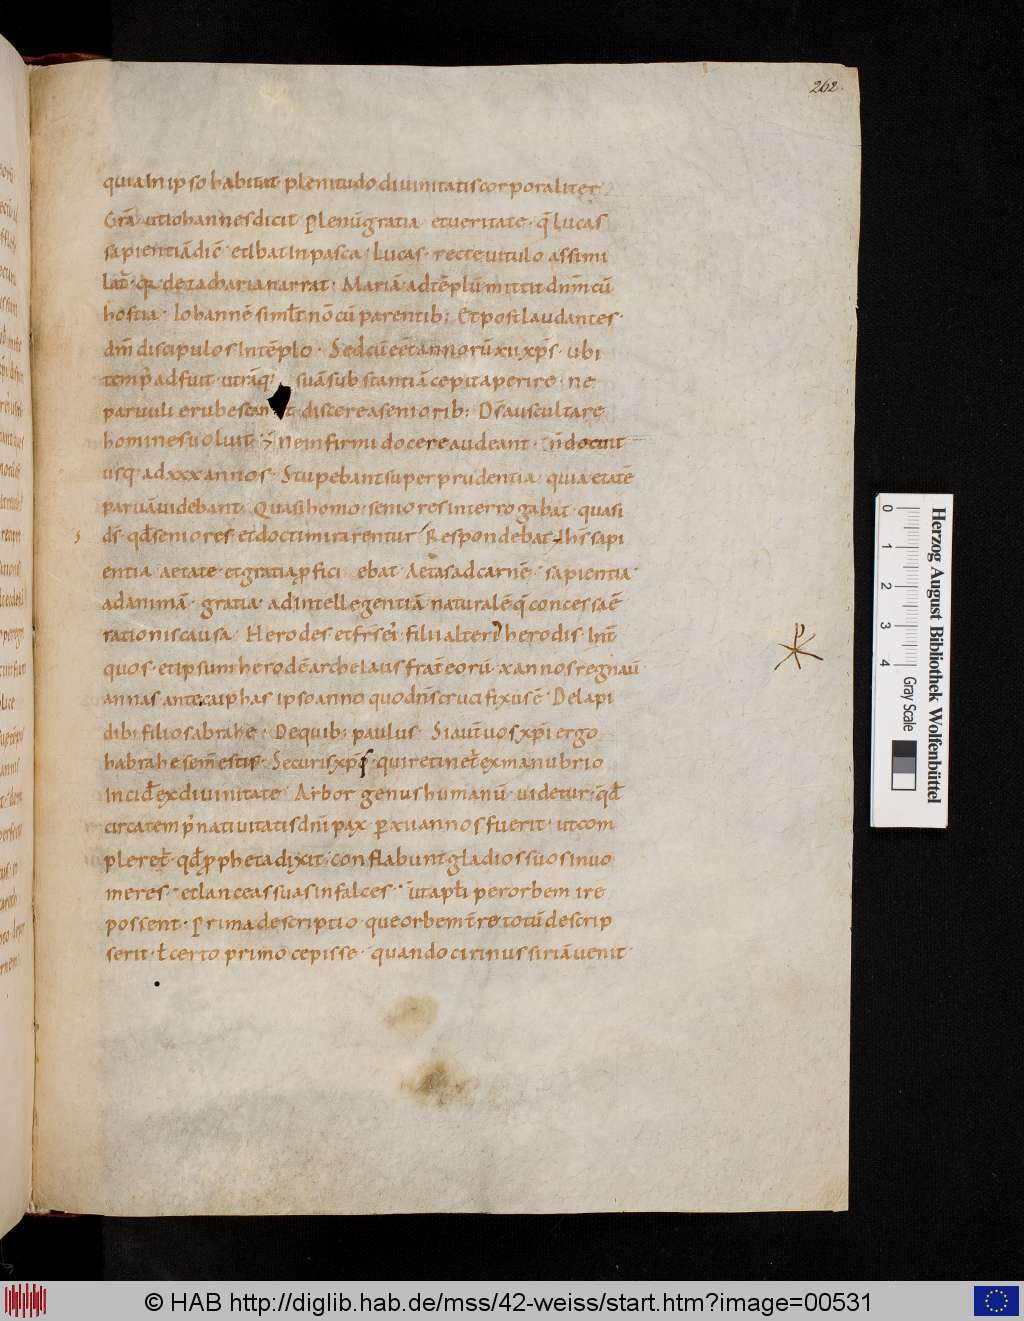 262.
quia In ipso habitat plenitudo diuinitatis corporaliter
Gra᷃ ut Iohannes dicit plenū gratia et ueritate · q̄ lucas
sapientiā dic̄ et Ibat In pasca · lucas · recte uitulo assimi
lat̄ · q̄ de zacharia narrat · Mariā ad tēplū mittit dn̄m cū
hostia · Iohannē simł nō cū parentib; Et post laudantes ·
dm̄ discipulos In tēplo · Sed cū eēt annorū xii xp̄s · ubi
temp̄ adfuit utrāq; suā substantiā cepit aperire · ne
paruuli erubescant discere a seniorib; Ds̄ auscultare
homines uoluit ne infirmi docere audeant · n̄ docuit
usq; ad xxx annos · Stupebant super prudentia quia etatē
paruā uidebant Quasi homo · seniores interrogabat · quasi
ds̄ · qd̄ seniores et docti mirarentur Respondebat Ihs̄ sapi
entia aetate et gratia ꝓfici ebat · Aetas ad carnē · sapientia
ad animā · gratia · ad intellegentiā naturalē q̄ concessa ē
rationis causa Herodes et fr̄ ei᷒ filii alteri herodis · Int̄
quos · et ipsum herodē archelaus frat̄ eorū · x annos regnau᷃
annas ante caiphas ipso anno quo dn̄s crucifixus ē · De lapi
dib; filios abrahe · De quib; paulus Si aut̄ uos xp̄i ergo
habrahe sem̄ estis · Securis xp̄s · qui retinet᷑ ex manubrio
Incid᷑ ex diuinitate Arbor genus humanū uidetur · qd̄
circa temp̄ natiuitatis dn̄i pax ꝑ xu annos fuerit · ut com
pleret᷑ · qd̄ ꝓpheta dixit · conflabunt gladios suos in uo
meres · et lanceas suas in falces · ut aptł̄i per orbem ire
possent · Prima descriptio · que orbem t̄re totū descrip
serit · ł certo primo cepisse · quando cirinus siriā uenit
0 1 2 3 4
Gray Scale
Herzog August Bibliothek Wolfenbüttel
© HAB http://diglib.hab.de/mss/42-weiss/start.htm?image=00531